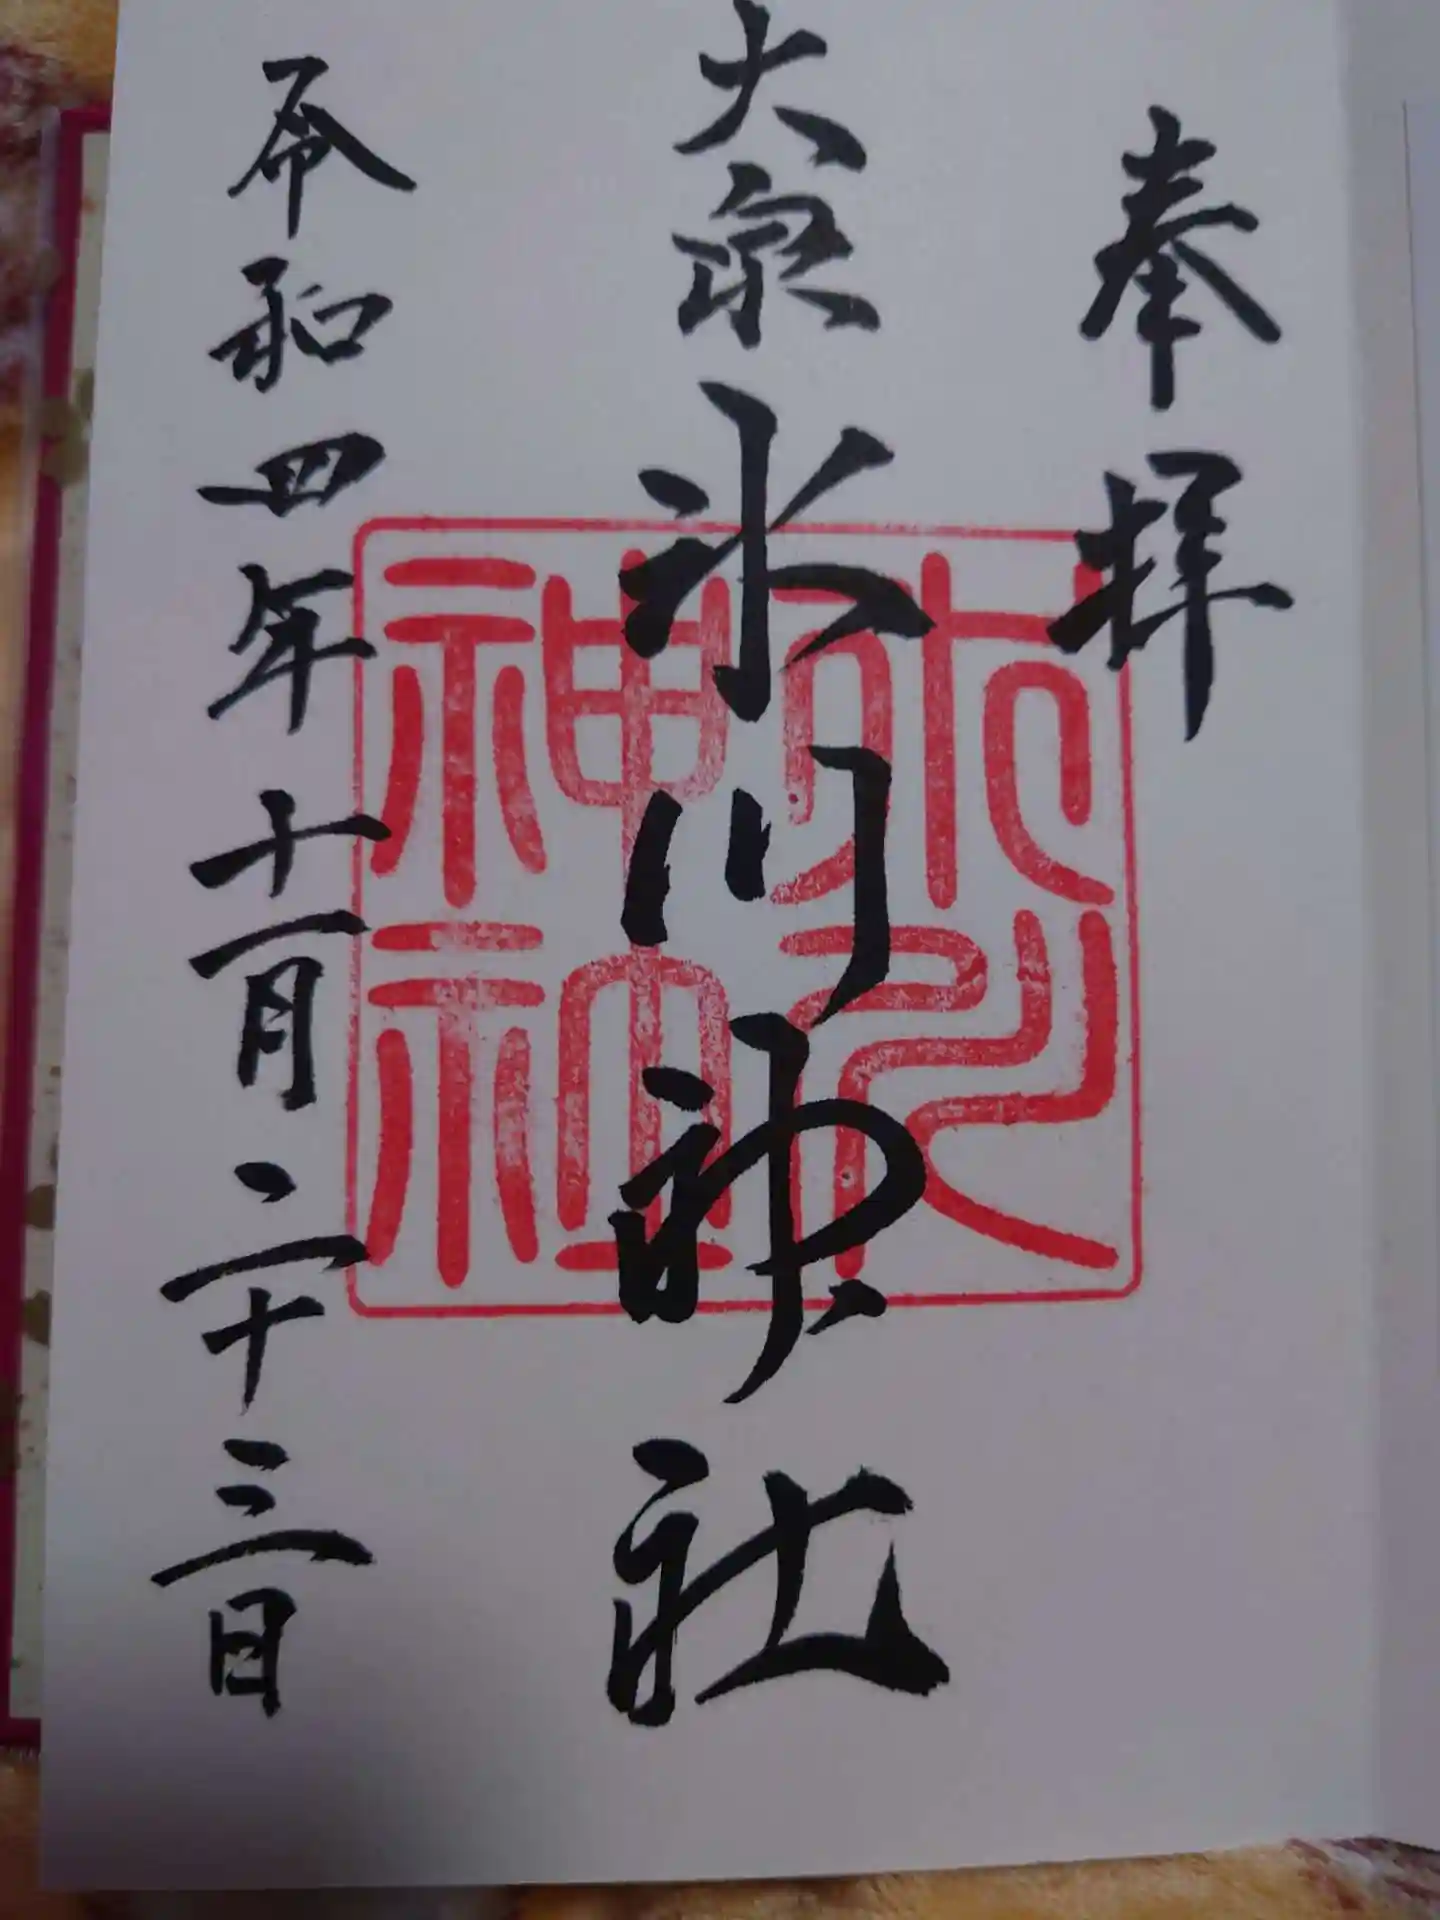 奉拝
大泉氷川神社
令和四年十一月二十三日
氷川
神社